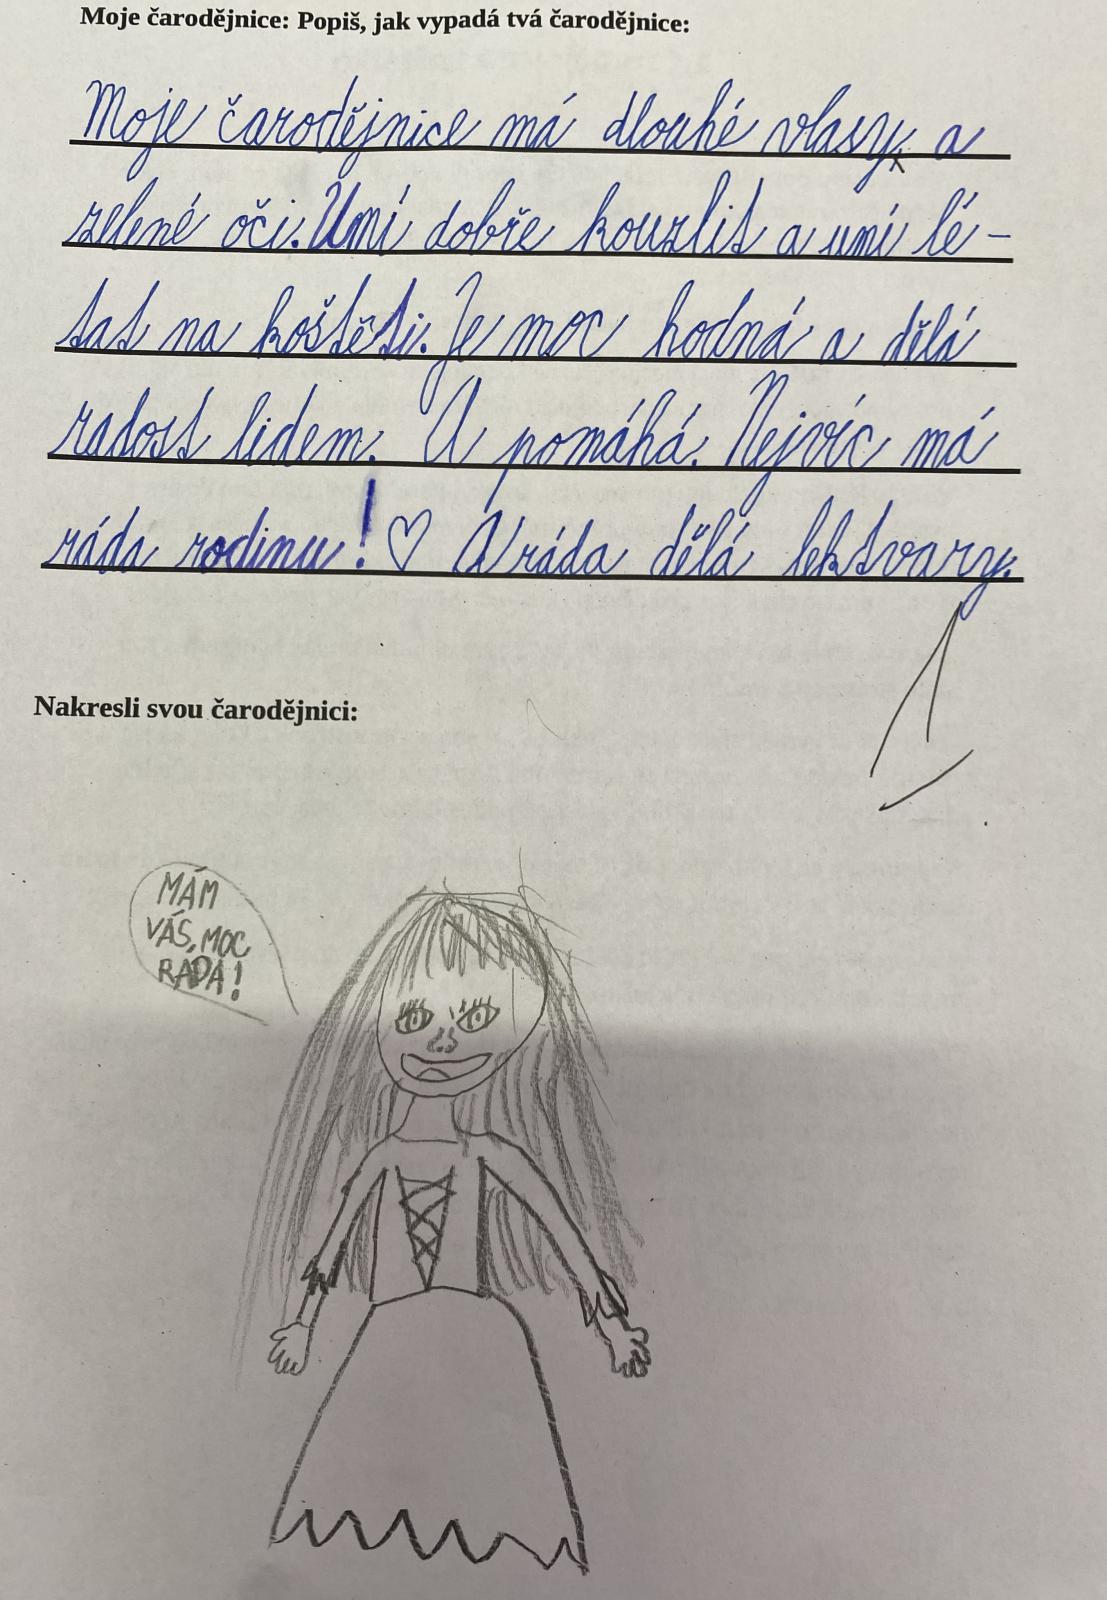 Moje čarodějnice: Popiš, jak vypadá tvá čarodějnice:
Moje čarodějnice má dlouhé vlasy a
zelené oči. Umí dobře kouzlit a umí lé-
tat na koštěti. Je moc hodná a dělá
radost lidem. A pomáhá. Nejvíc má
ráda rodinu! ♡ A ráda dělá lektvary.
1
Nakresli svou čarodějnici:
MÁM
VÁS, MOC
RADA!